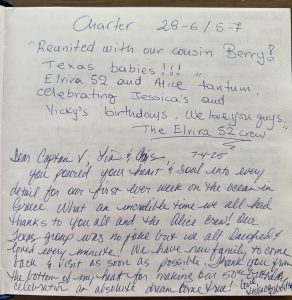 Charter 28-6 / 5-7
"Reunited with our cousin Berry!
Texas babies!!!
Elvira 52 and Alice tantum.
celebrating Jessica's and
Vicky's birthdays. We love you guys."
The Elvira 52 crew
7-4-25
Dear Captain V, Lia &
you poured your heart & soul into every
detail for our first ever week on the ocean in
Greece. What an incredible time we all had
thanks to you all and the Alice crew! Our
Texas group was no joke but we all laughed &
loved every minute! We have new family to come
back & visit as soon as possible. Thank you from
the bottom of my heart for making our 50th birthday
celebration an absolute dream come true!